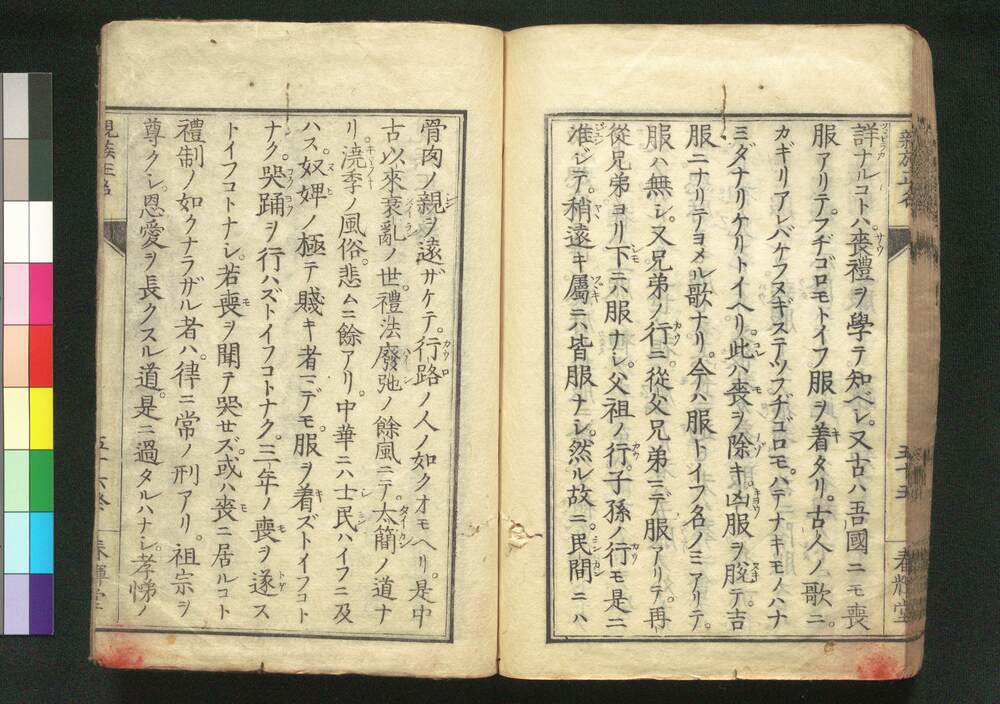 詳ナルコトハ。喪禮ヲ學テ知ベシ。又古ハ吾國ニモ喪
服アリテ。フヂゴロモトイフ服ヲ着タリ。古人ノ歌ニ。
カギリアレバケフヌギステツフヂゴロモ。ハテナキモノハナ
ミダナリケリトイヘリ。此ハ喪ヲ除キ。凶服ヲ脫テ。吉
服ニナリテヨメル歌ナリ。今ハ服トイフ名ノミアリテ。
服ハ無シ。又兄弟ノ行ニ。從父兄弟ニデ服アリテ。再
從兄弟ヨリ下ニハ服ナシ。父祖ノ行。子孫ノ行モ是ニ
准ジテ。稍遠キ屬ニハ皆服ナシ。然ル故ニ。民間ニハ
骨肉ノ親ヲ遠ザケテ。行路ノ人ノ如クオモヘリ。是中
古以來衰亂ノ世。禮法廢弛ノ餘風ニテ。太簡ノ道ナ
リ。澆季ノ風俗。悲ムニ餘アリ。中華ニハ士民ハイフニ及
ハス。奴婢ノ極テ賤キ者ニデモ。服ヲ着ズトイフコト
ナク。哭踊ヲ行ハズトイフコトナク。三年ノ喪ヲ遂ス
トイフコトナシ。若喪ヲ聞テ哭セズ。或ハ喪ニ居ルコト
禮制ノ如クナラザル者ハ。律ニ常ノ刑アリ。祖宗ヲ
尊クシ。恩愛ヲ長クスル道。是ニ過タルハナシ。孝悌ノ
親族正名
五十六終
春輝堂